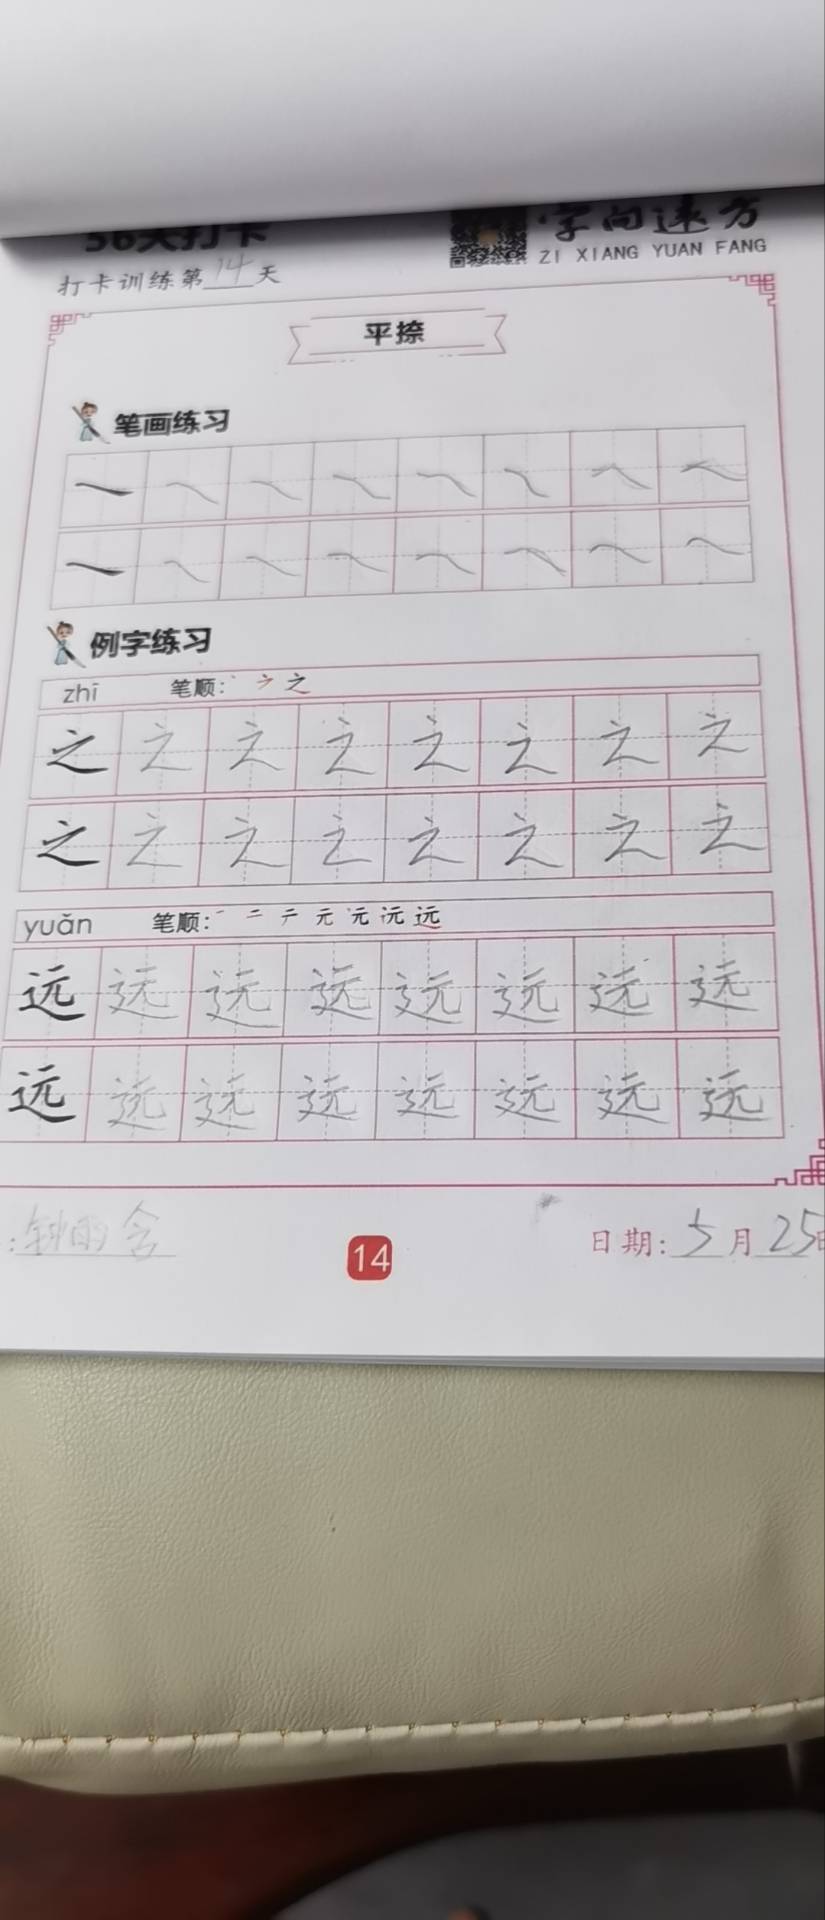 36天打卡
·字向速方
ZI XIANG YUAN FANG
打卡训练第14天
平捺
笔画练习
例字练习
zhī 笔顺: 丶 之
之 之 之 之 之 之 之 之
之 之 之 之 之 之 之 之
yuǎn 笔顺: 一 二 テ 元 元 沅 远
远 远 远 远 远 远 远 远
远 远 远 远 远 远 远 远
: 钟雨含
14
日期: 5月25日